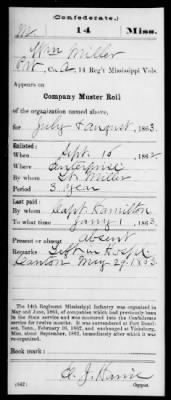 (Confederate.)
M 14 Miss.
Wm Miller
Pvt, Co. A, 14 Reg't Mississippi Vols.
Appears on
Company Muster Roll
of the organization named above,
for July & August, 1863.
Enlisted:
When Sept. 15, 186
Where Enterprise
By Lt. Miller
Period 3 year
Last paid:
By Capt. Hamilton
To what time Jany 1, 1863.
Present or absent Absent
Remarks: Left in Hospl
Canton May 29. 1863.
The 14th Regiment Mississippi Infantry was organized in
May and June, 1861, of companies which had previously been
in the State service and was mustered into the Confederate
service for twelve months. It was surrendered at Fort Donel-
son, Tenn., February 16, 1862, and exchanged at Vicksburg,
Miss. about September, 1862, immediately after which it was
re-organized.
Book mark:
(642) Copyist.